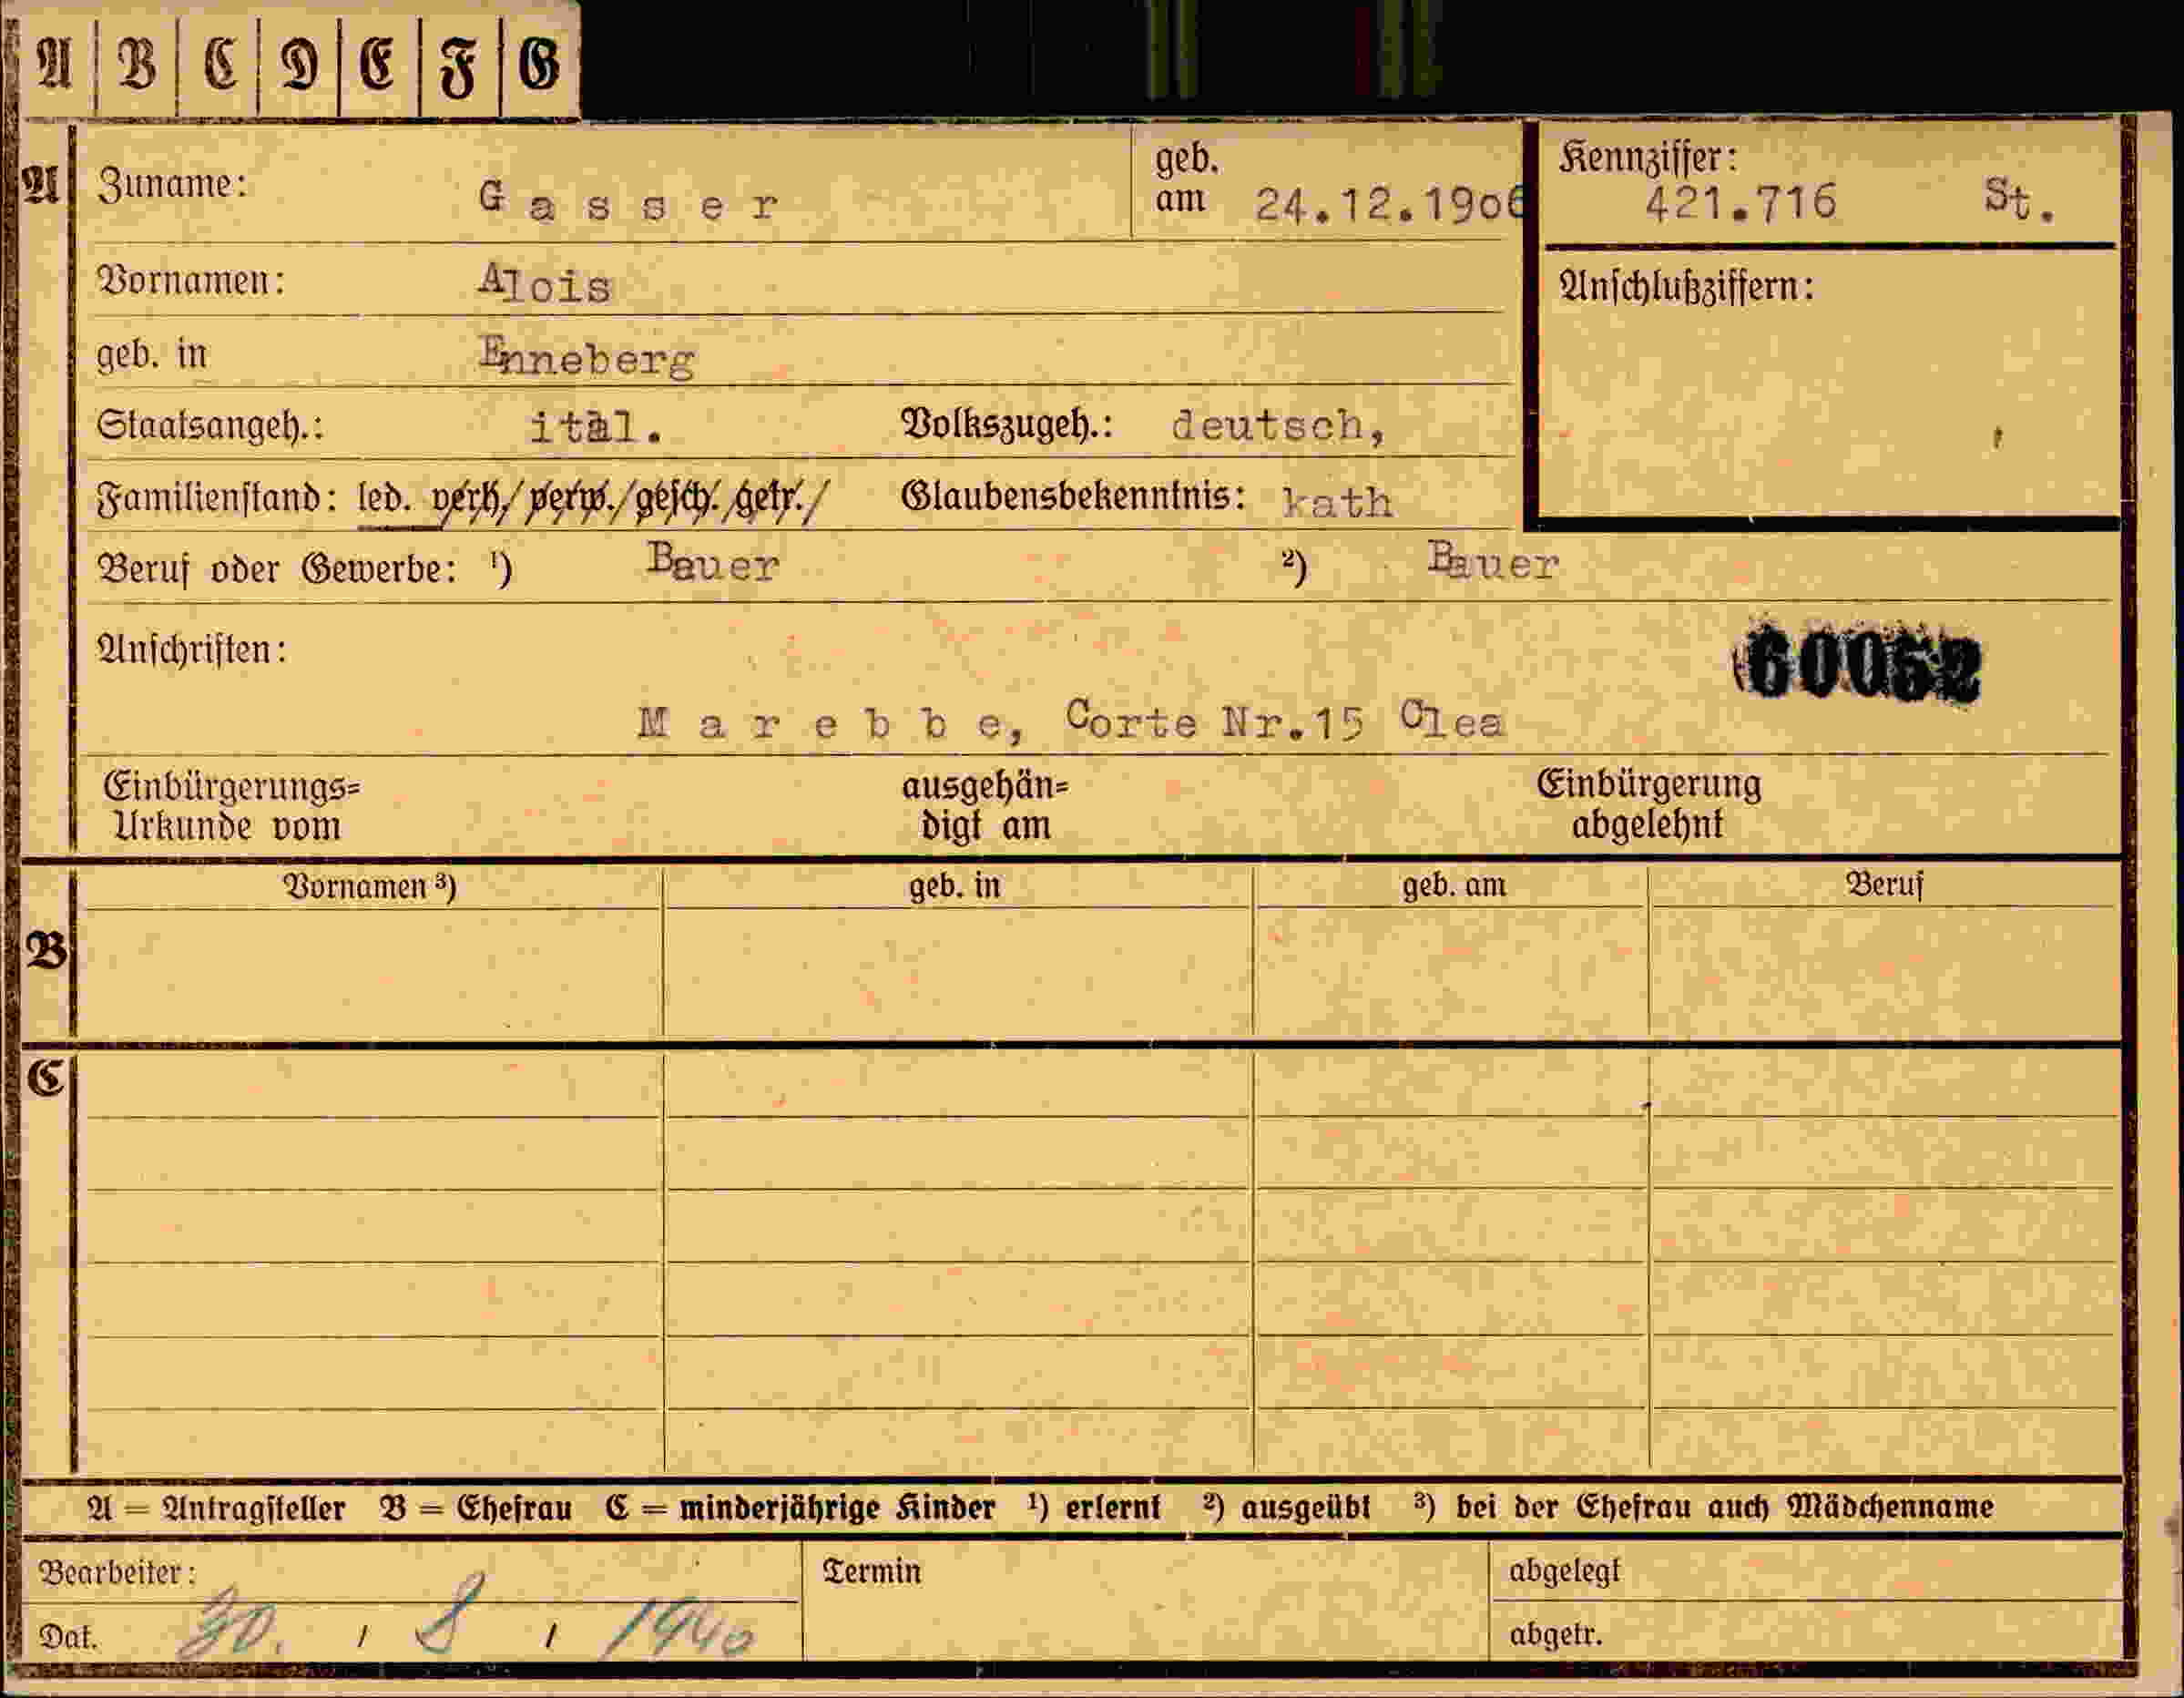 A B C D E F G
A Zuname: Gasser geb. am 24.12.1906 Kennziffer: 421.716 St.
Vornamen: Alois Anschlußziffern:
geb. in Enneberg
Staatsangeh.: ital. Volkszugeh.: deutsch,
Familienstand: led. verh/ verw./ gesch./ getr./ Glaubensbekenntnis: kath
Beruf oder Gewerbe: 1) Bauer 2) Bauer
Anschriften: 60052
Marebbe, Corte Nr.15 Clea
Einbürgerungs= ausgehän= Einbürgerung
Urkunde vom digt am abgelehnt
Vornamen 3) geb. in geb. am Beruf
B
C
A = Antragsteller B = Ehefrau C = minderjährige Kinder 1) erlernt 2) ausgeübt 3) bei der Ehefrau auch Mädchenname
Bearbeiter: Termin abgelegt
Dat. 30. / 8 / 1940 abgetr.